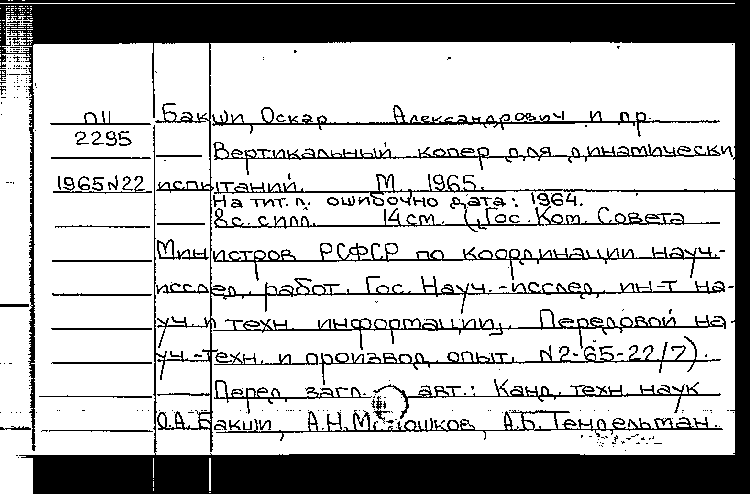 ПЧ Бакши, Оскар Александрович и др.
2295
Вертикальный копер для динамически
1965 N22 испытаний. М., 1965.
На тит. л. ошибочно дата: 1964.
8 с. с илл. 14 см. (Гос. Ком. Совета
Министров РСФСР по координации науч.-
исслед. работ. Гос. Науч.-исслед. ин-т на-
уч. и техн. информации. Передовой на-
уч.-техн. и производ. опыт. N2-65-22/7).
Перед загл. авт.: Канд. техн. наук
О.А. Бакши, А.Н. А.Б. Гендельман.